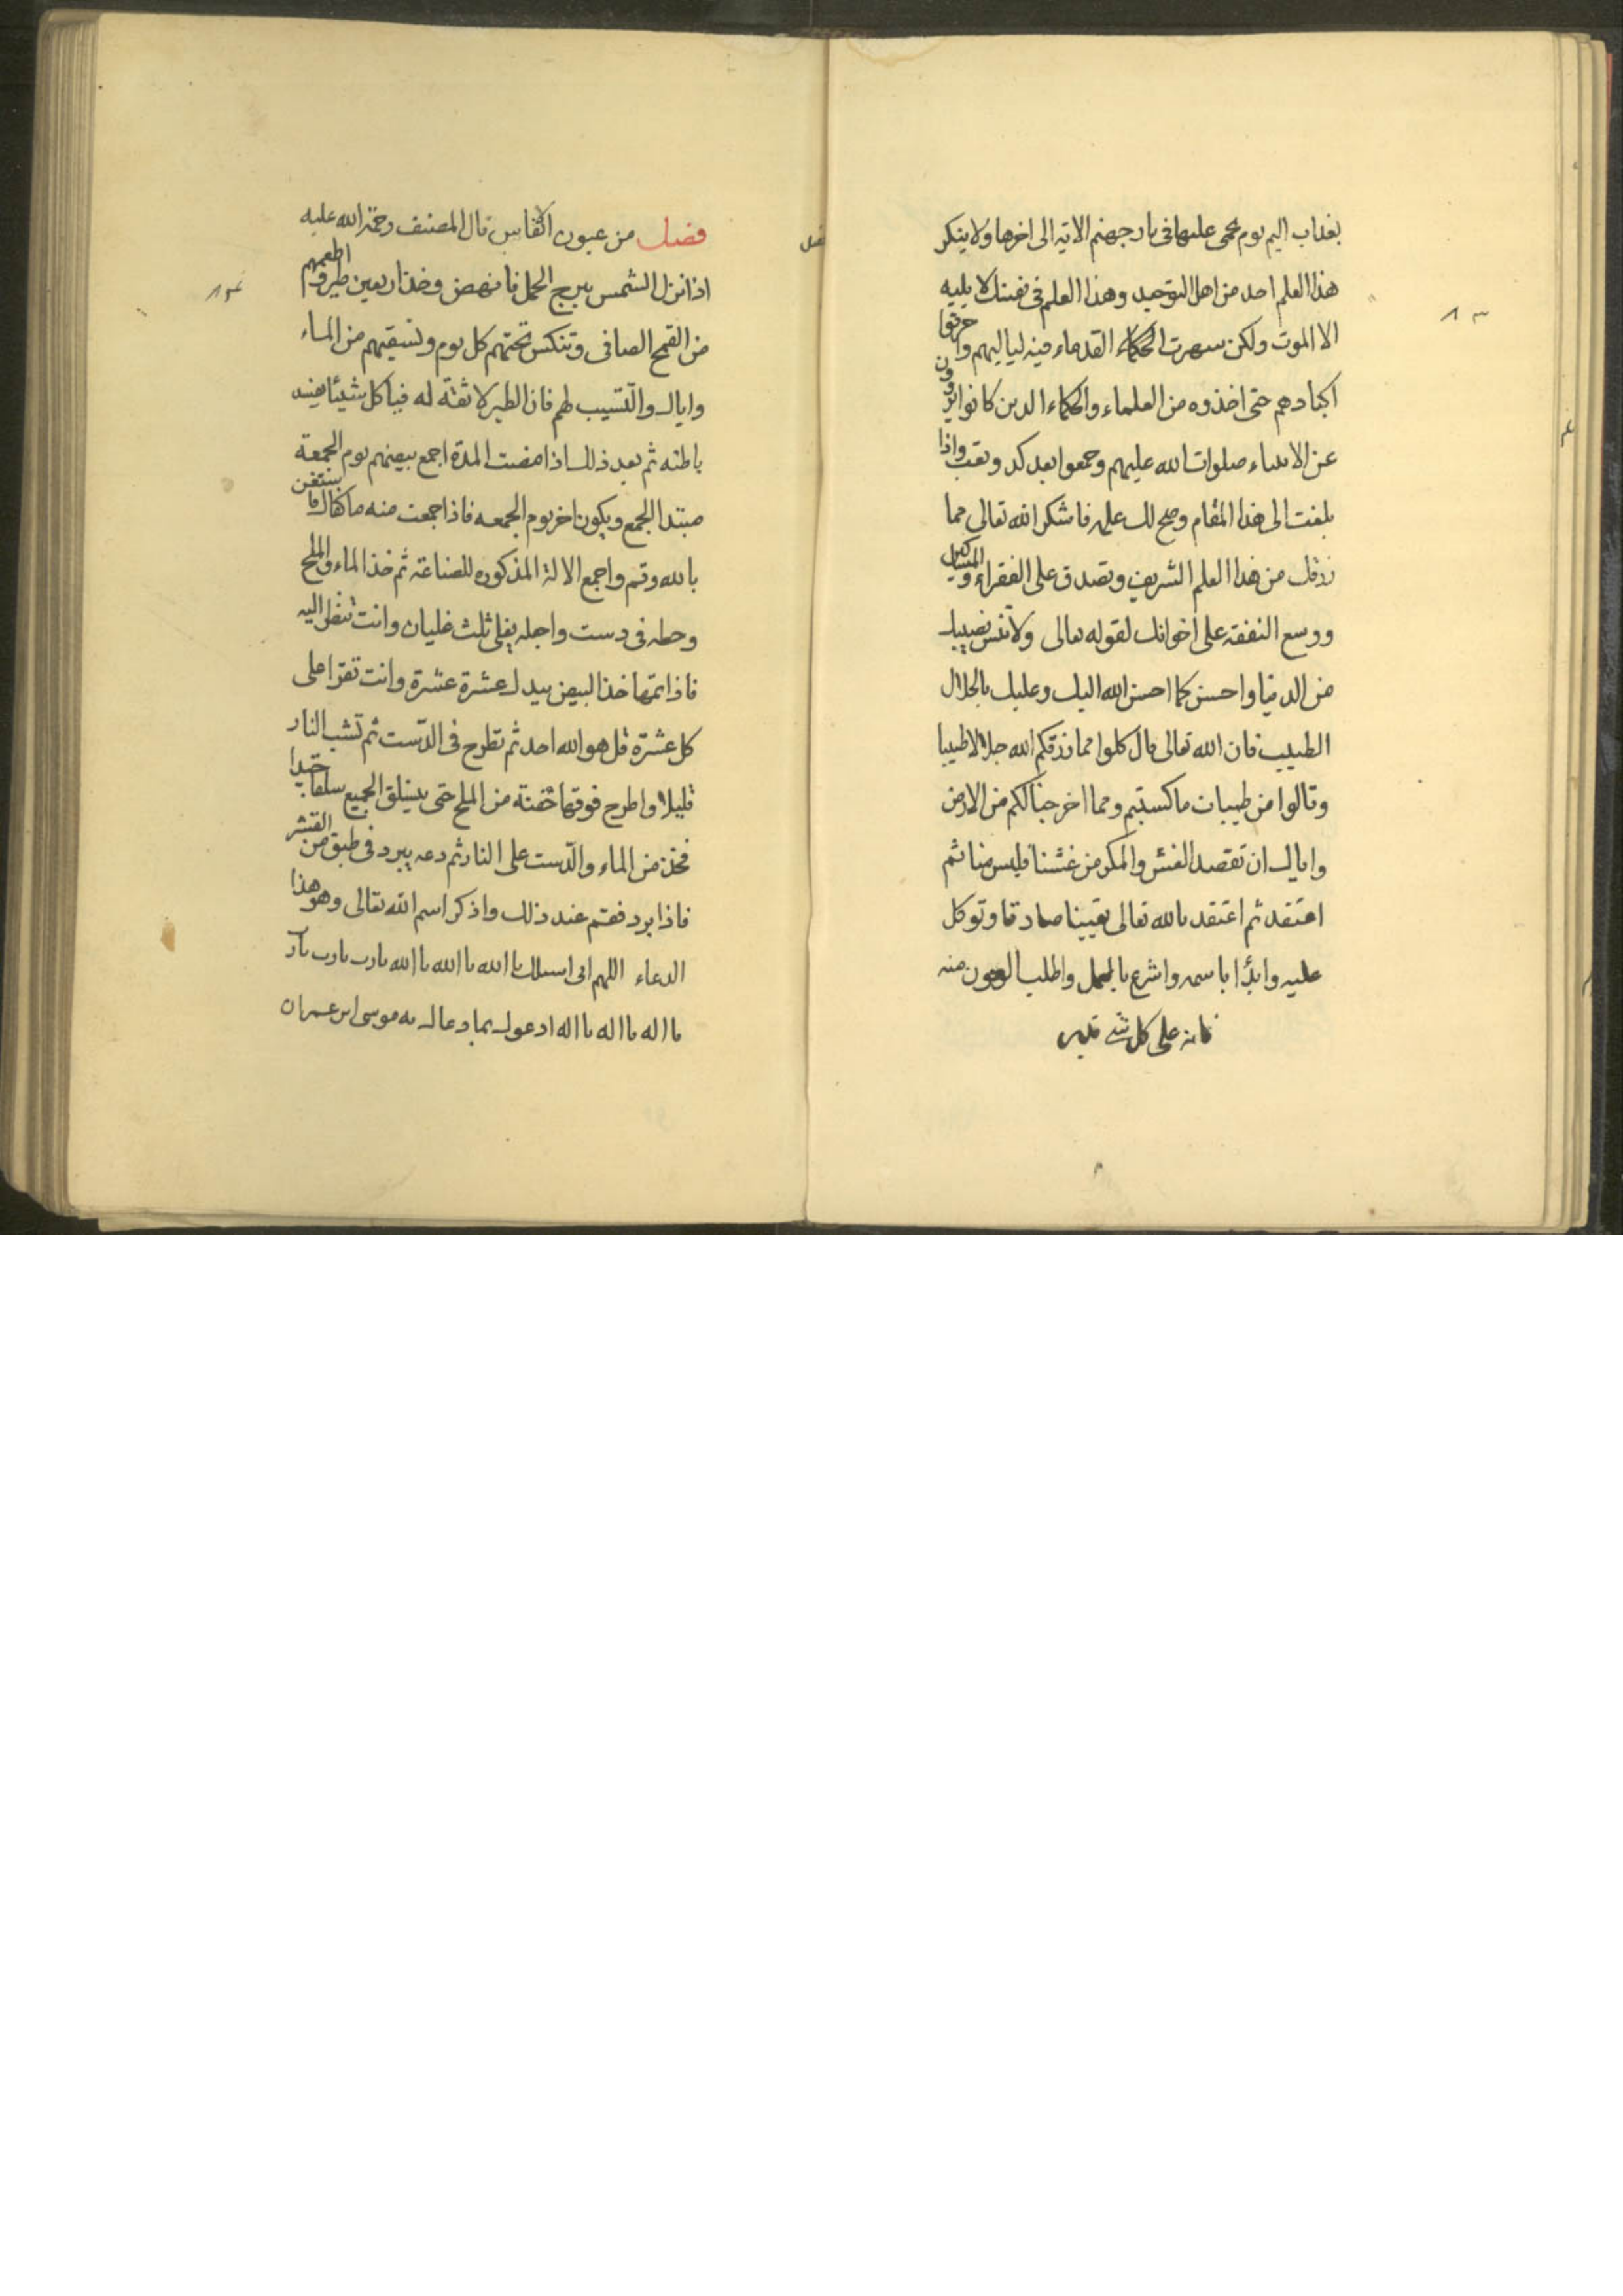 بعذاب اليم يوم يحمى عليها فى نار جهنم الاية الى اخرها ولا ينكر
هذا العلم احد من اهل التوحيد وهذا العلم فى نفسك لا يليه
الا الموت ولكن سهرت الحكماء القدماء فيه لياليهم واحرقوا
اكبادهم حتى اخذوه من العلماء والحكماء الذين كانوا يروون
عن الانبياء صلوات الله عليهم وجمعوا بعد كد وتعب واذا
بلغت الى هذا المقام وصح لك علمه فاشكر الله تعالى مما
رزقك من هذا العلم الشريف وتصدق على الفقراء والمساكين
ووسع النفقه على اخوانك لقوله تعالى ولا تنس نصيبك
من الدنيا واحسن كما احسن الله اليك وعليك بالحلال
الطيب فان الله تعالى قال كلوا مما رزقكم الله حلالا طيبا
وقالوا من طيبات ما كسبتم ومما اخرجنا لكم من الارض
واياك ان تقصد الغش والمكر من غشنا فليس منا ثم
اعتقد ثم اعتقد بالله تعالى يقينا صادقا وتوكل
عليه وابدٔا باسمه واشرع بالعمل واطلب العون منه
فانه على كل شى قدير
فصل
٨٣
فصل من عيون الانفاس قال المصنف رحمة الله عليه
اذا نزل الشمس ببرج الحمل فانهض وخذ اربعين طير واطعمهم
من القمح الصافى وتنكس تحتهم كل يوم وتسقيهم من الماء
واياك والتسيب لهم فان الطير لا ثقة له فياكل شيئا يفسد
باطنه ثم بعد ذلك اذا مضت المدة اجمع بيضهم يوم الجمعة
مبتدا الجمع ويكون اخر يوم الجمعه فاذا جمعت منه ما كفاك فاستعن
بالله وقم واجمع الالة المذكوره للصناعة ثم خذ الماء والملح
وحطه فى دست واجله يغلى ثلث غليان وانت تنظر اليه
فاذا تمها خذ البيض بيدك عشرة عشرة وانت تقرا على
كل عشرة قل هو الله احد ثم تطرح فى الدّست ثم تشب النار
قليلا واطرح فوقها حفنة من الملح حتى ينسلق الجميع سلقا جيدا
فخذ من الماء والدّست على النار ثم دعه يبرد فى طبق من القشر
فاذا برد فقم عند ذلك واذكر اسم الله تعالى وهو هذا
الدعاء اللهم انى اسىٔلك يا الله يا الله يا الله يارب يارب يارب
يا اله يا اله يا اله ادعوك بما دعاك به موسى ابن عمران
٨٤